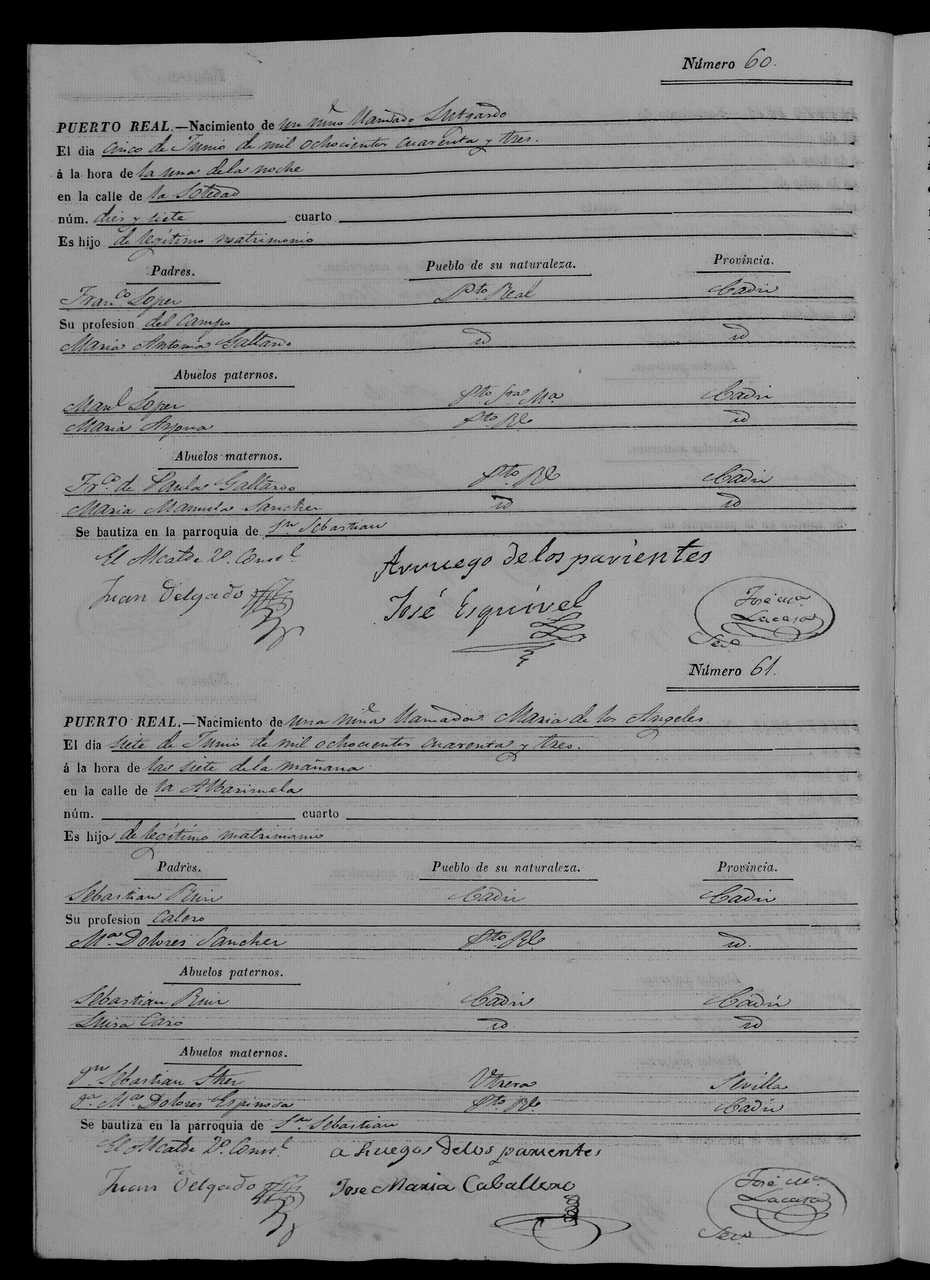 Número 60.
PUERTO REAL.—Nacimiento de un niño llamado Lutgardo
El dia cinco de Junio de mil ochocientos cuarenta y tres.
á la hora de la una de la noche
en la calle de la Soledad
núm. dies y siete cuarto
Es hijo de legítimo matrimonio
Padres. Pueblo de su naturaleza. Provincia.
Fran.co Lopez Pto Real Cadiz
Su profesion del campo
Maria Antonia Gallardo id id
Abuelos paternos.
Manl Lopez Pto Sta Ma Cadiz
Maria Arjona Pto Rl Cadiz
Abuelos maternos.
Frco de Paula Gallardo Pto Rl Cadiz
Maria Manuela Sanchez id id
Se bautiza en la parroquia de Sn Sebastian
El Alcalde 2º Const.l Arruego de los parientes
Juan Delgado José Esquivel José Ma Lacasa
Srio
Número 61.
PUERTO REAL.—Nacimiento de una niña llamada Maria de los Angeles
El dia siete de Junio de mil ochocientos cuarenta y tres.
á la hora de las siete de la mañana
en la calle de la Albarizuela
núm. cuarto
Es hijo de legítimo matrimonio
Padres. Pueblo de su naturaleza. Provincia.
Sebastian Ruiz Cadiz Cadiz
Su profesion Calero
Ma Dolores Sanchez Pto Rl id.
Abuelos paternos.
Sebastian Ruiz Cadiz Cadiz
Luisa Caro id id
Abuelos maternos.
Dn Sebastian Shez Utrera Sevilla
Da Ma Dolores Espinosa Pto Rl Cadiz
Se bautiza en la parroquia de Sn Sebastian
El Alcalde 2º Const.l a Ruegos de los parientes
Juan Delgado Jose Maria Caballero José Ma Lacasa
Srio